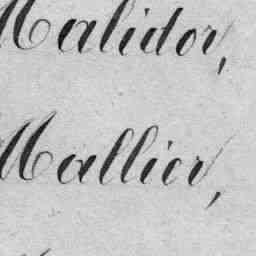 Malidor,
Mallier,